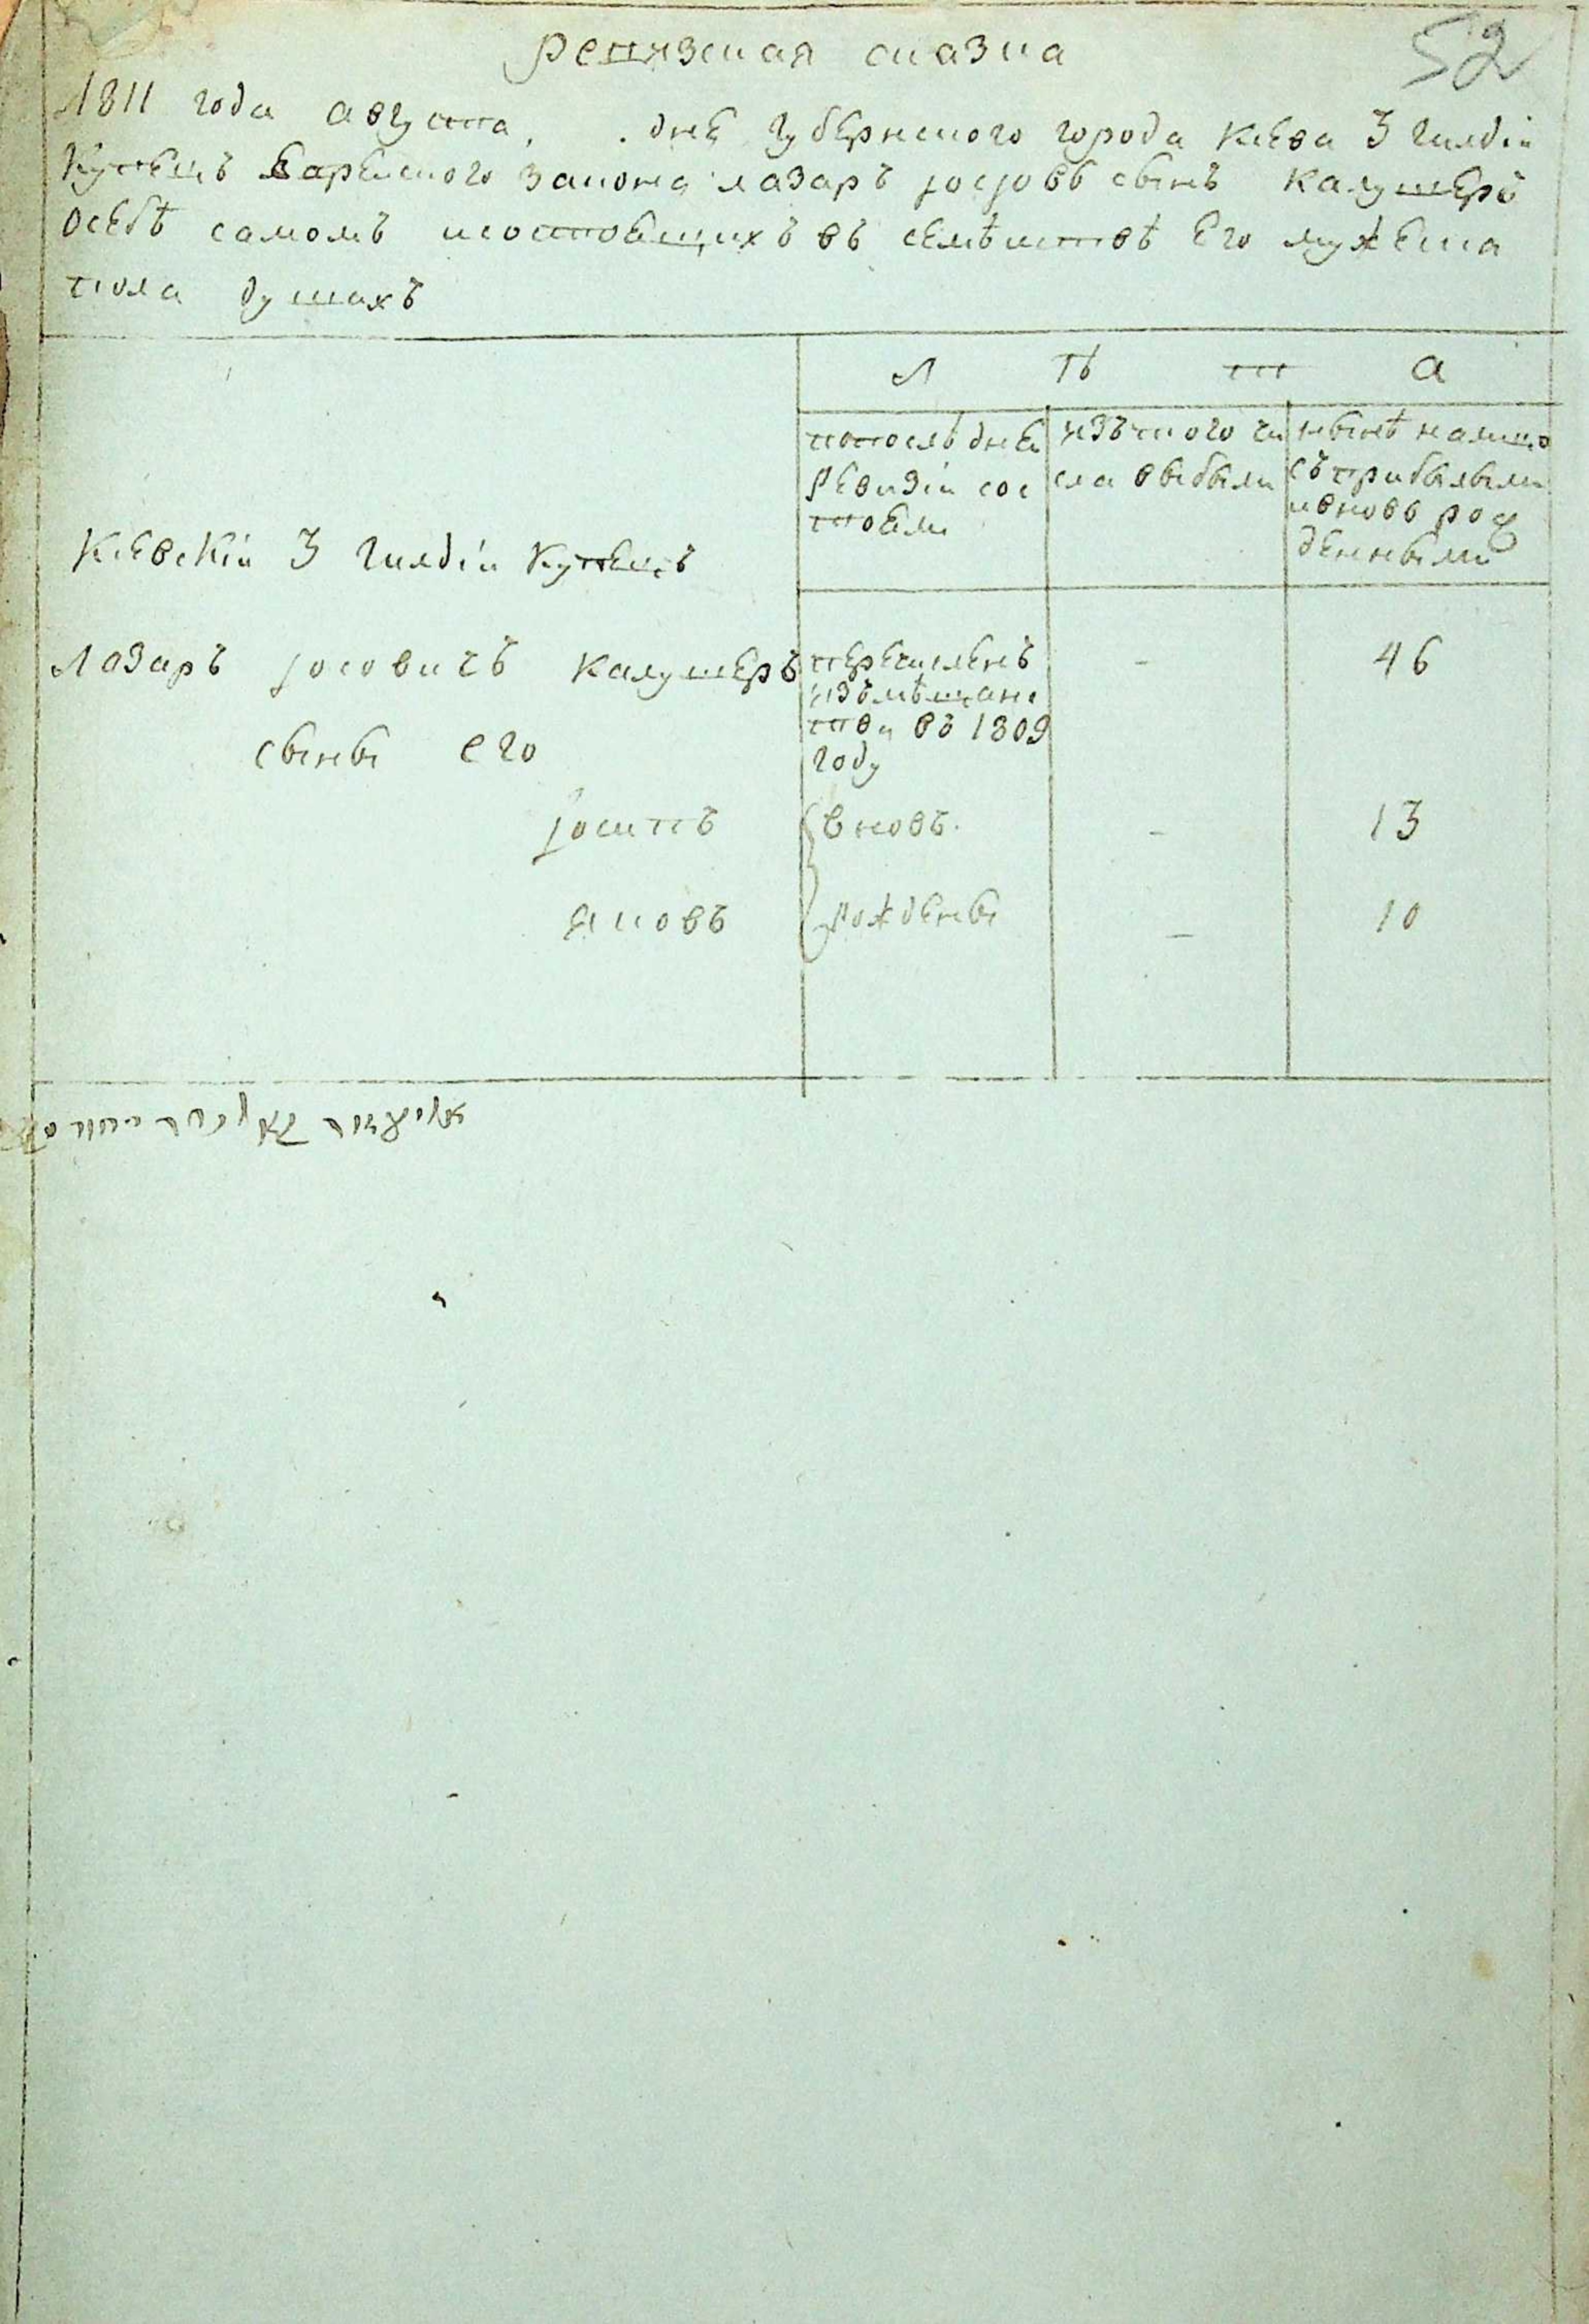 Ревизская сказка
52
1811 года августа дне губернского города Киева 3 гилдiи
Купецъ Еврейского закона лазаръ иосiовъ сынъ Калушеръ
осебѣ самомъ исостоящихъ въ семѣйствѣ его мужеска
пола душахъ
Л ѣ т а
попослѣдней
Ревизiи сос
тояли
изътого чи
сла выбыли
нынѣ налицо
съприбылыми
ивновь рож
денными
Кiевскiй 3 гилдiи купецъ
Лазаръ иосовичъ Калушеръ
перечисленъ
изъмѣщанс
тва въ 1809
году
-
46
сыны его
иосипъ
вновъ
-
13
яковъ
рождены
-
10